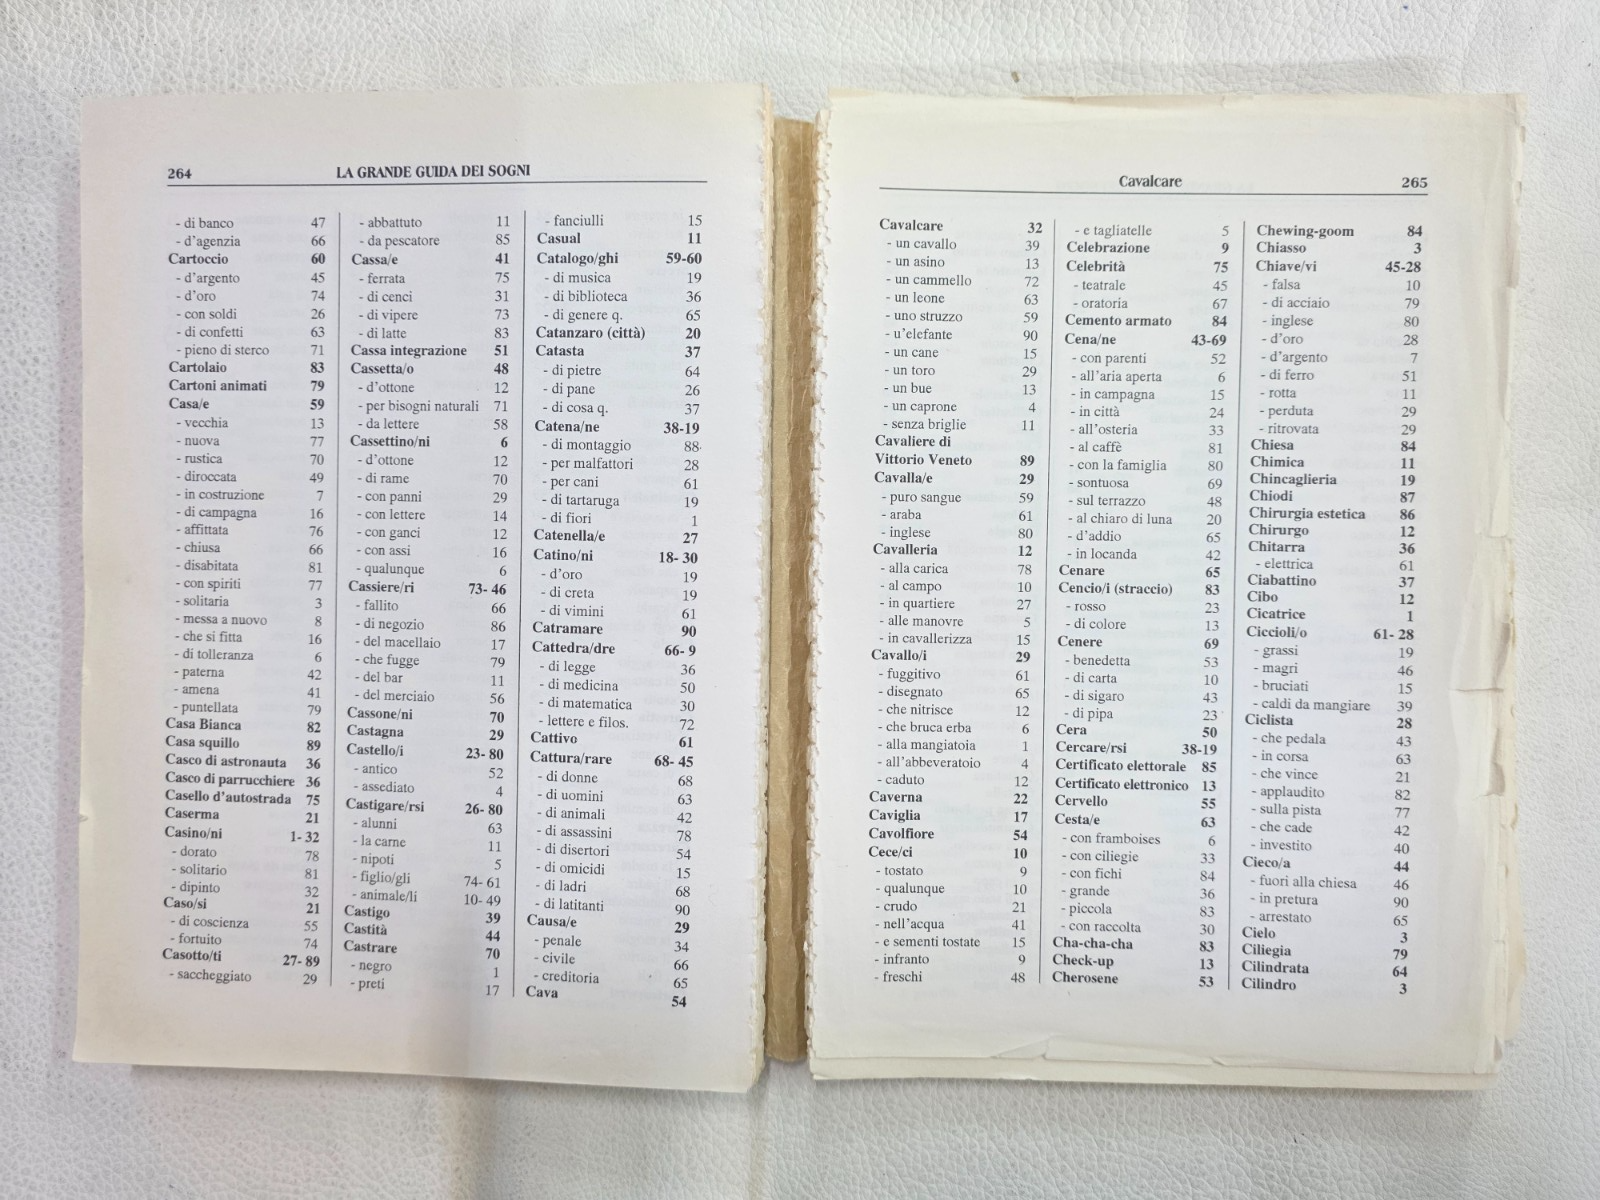 264 LA GRANDE GUIDA DEI SOGNI
- di banco 47
- d'agenzia 66
Cartoccio 60
- d'argento 45
- d'oro 74
- con soldi 26
- di confetti 63
- pieno di sterco 71
Cartolaio 83
Cartoni animati 79
Casa/e 59
- vecchia 13
- nuova 77
- rustica 70
- diroccata 49
- in costruzione 7
- di campagna 16
- affittata 76
- chiusa 66
- disabitata 81
- con spiriti 77
- solitaria 3
- messa a nuovo 8
- che si fitta 16
- di tolleranza 6
- paterna 42
- amena 41
- puntellata 79
Casa Bianca 82
Casa squillo 89
Casco di astronauta 36
Casco di parrucchiere 36
Casello d'autostrada 75
Caserma 21
Casino/ni 1- 32
- dorato 78
- solitario 81
- dipinto 32
Caso/si 21
- di coscienza 55
- fortuito 74
Casotto/ti 27- 89
- saccheggiato 29
- abbattuto 11
- da pescatore 85
Cassa/e 41
- ferrata 75
- di cenci 31
- di vipere 73
- di latte 83
Cassa integrazione 51
Cassetta/o 48
- d'ottone 12
- per bisogni naturali 71
- da lettere 58
Cassettino/ni 6
- d'ottone 12
- di rame 70
- con panni 29
- con lettere 14
- con ganci 12
- con assi 16
- qualunque 6
Cassiere/ri 73- 46
- fallito 66
- di negozio 86
- del macellaio 17
- che fugge 79
- del bar 11
- del merciaio 56
Cassone/ni 70
Castagna 29
Castello/i 23- 80
- antico 52
- assediato 4
Castigare/rsi 26- 80
- alunni 63
- la carne 11
- nipoti 5
- figlio/gli 74- 61
- animale/li 10- 49
Castigo 39
Castità 44
Castrare 70
- negro 1
- preti 17
- fanciulli 15
Casual 11
Catalogo/ghi 59-60
- di musica 19
- di biblioteca 36
- di genere q. 65
Catanzaro (città) 20
Catasta 37
- di pietre 64
- di pane 26
- di cosa q. 37
Catena/ne 38-19
- di montaggio 88
- per malfattori 28
- per cani 61
- di tartaruga 19
- di fiori 1
Catenella/e 27
Catino/ni 18- 30
- d'oro 19
- di creta 19
- di vimini 61
Catramare 90
Cattedra/dre 66- 9
- di legge 36
- di medicina 50
- di matematica 30
- lettere e filos. 72
Cattivo 61
Cattura/rare 68- 45
- di donne 68
- di uomini 63
- di animali 42
- di assassini 78
- di disertori 54
- di omicidi 15
- di ladri 68
- di latitanti 90
Causa/e 29
- penale 34
- civile 66
- creditoria 65
Cava 54
Cavalcare 265
Cavalcare 32
- un cavallo 39
- un asino 13
- un cammello 72
- un leone 63
- uno struzzo 59
- u'elefante 90
- un cane 15
- un toro 29
- un bue 13
- un caprone 4
- senza briglie 11
Cavaliere di
Vittorio Veneto 89
Cavalla/e 29
- puro sangue 59
- araba 61
- inglese 80
Cavalleria 12
- alla carica 78
- al campo 10
- in quartiere 27
- alle manovre 5
- in cavallerizza 15
Cavallo/i 29
- fuggitivo 61
- disegnato 65
- che nitrisce 12
- che bruca erba 6
- alla mangiatoia 1
- all'abbeveratoio 4
- caduto 12
Caverna 22
Caviglia 17
Cavolfiore 54
Cece/ci 10
- tostato 9
- qualunque 10
- crudo 21
- nell'acqua 41
- e sementi tostate 15
- infranto 9
- freschi 48
- e tagliatelle 5
Celebrazione 9
Celebrità 75
- teatrale 45
- oratoria 67
Cemento armato 84
Cena/ne 43-69
- con parenti 52
- all'aria aperta 6
- in campagna 15
- in città 24
- all'osteria 33
- al caffè 81
- con la famiglia 80
- sontuosa 69
- sul terrazzo 48
- al chiaro di luna 20
- d'addio 65
- in locanda 42
Cenare 65
Cencio/i (straccio) 83
- rosso 23
- di colore 13
Cenere 69
- benedetta 53
- di carta 10
- di sigaro 43
- di pipa 23
Cera 50
Cercare/rsi 38-19
Certificato elettorale 85
Certificato elettronico 13
Cervello 55
Cesta/e 63
- con framboises 6
- con ciliegie 33
- con fichi 84
- grande 36
- piccola 83
- con raccolta 30
Cha-cha-cha 83
Check-up 13
Cherosene 53
Chewing-goom 84
Chiasso 3
Chiave/vi 45-28
- falsa 10
- di acciaio 79
- inglese 80
- d'oro 28
- d'argento 7
- di ferro 51
- rotta 11
- perduta 29
- ritrovata 29
Chiesa 84
Chimica 11
Chincaglieria 19
Chiodi 87
Chirurgia estetica 86
Chirurgo 12
Chitarra 36
- elettrica 61
Ciabattino 37
Cibo 12
Cicatrice 1
Ciccioli/o 61- 28
- grassi 19
- magri 46
- bruciati 15
- caldi da mangiare 39
Ciclista 28
- che pedala 43
- in corsa 63
- che vince 21
- applaudito 82
- sulla pista 77
- che cade 42
- investito 40
Cieco/a 44
- fuori alla chiesa 46
- in pretura 90
- arrestato 65
Cielo 3
Ciliegia 79
Cilindrata 64
Cilindro 3